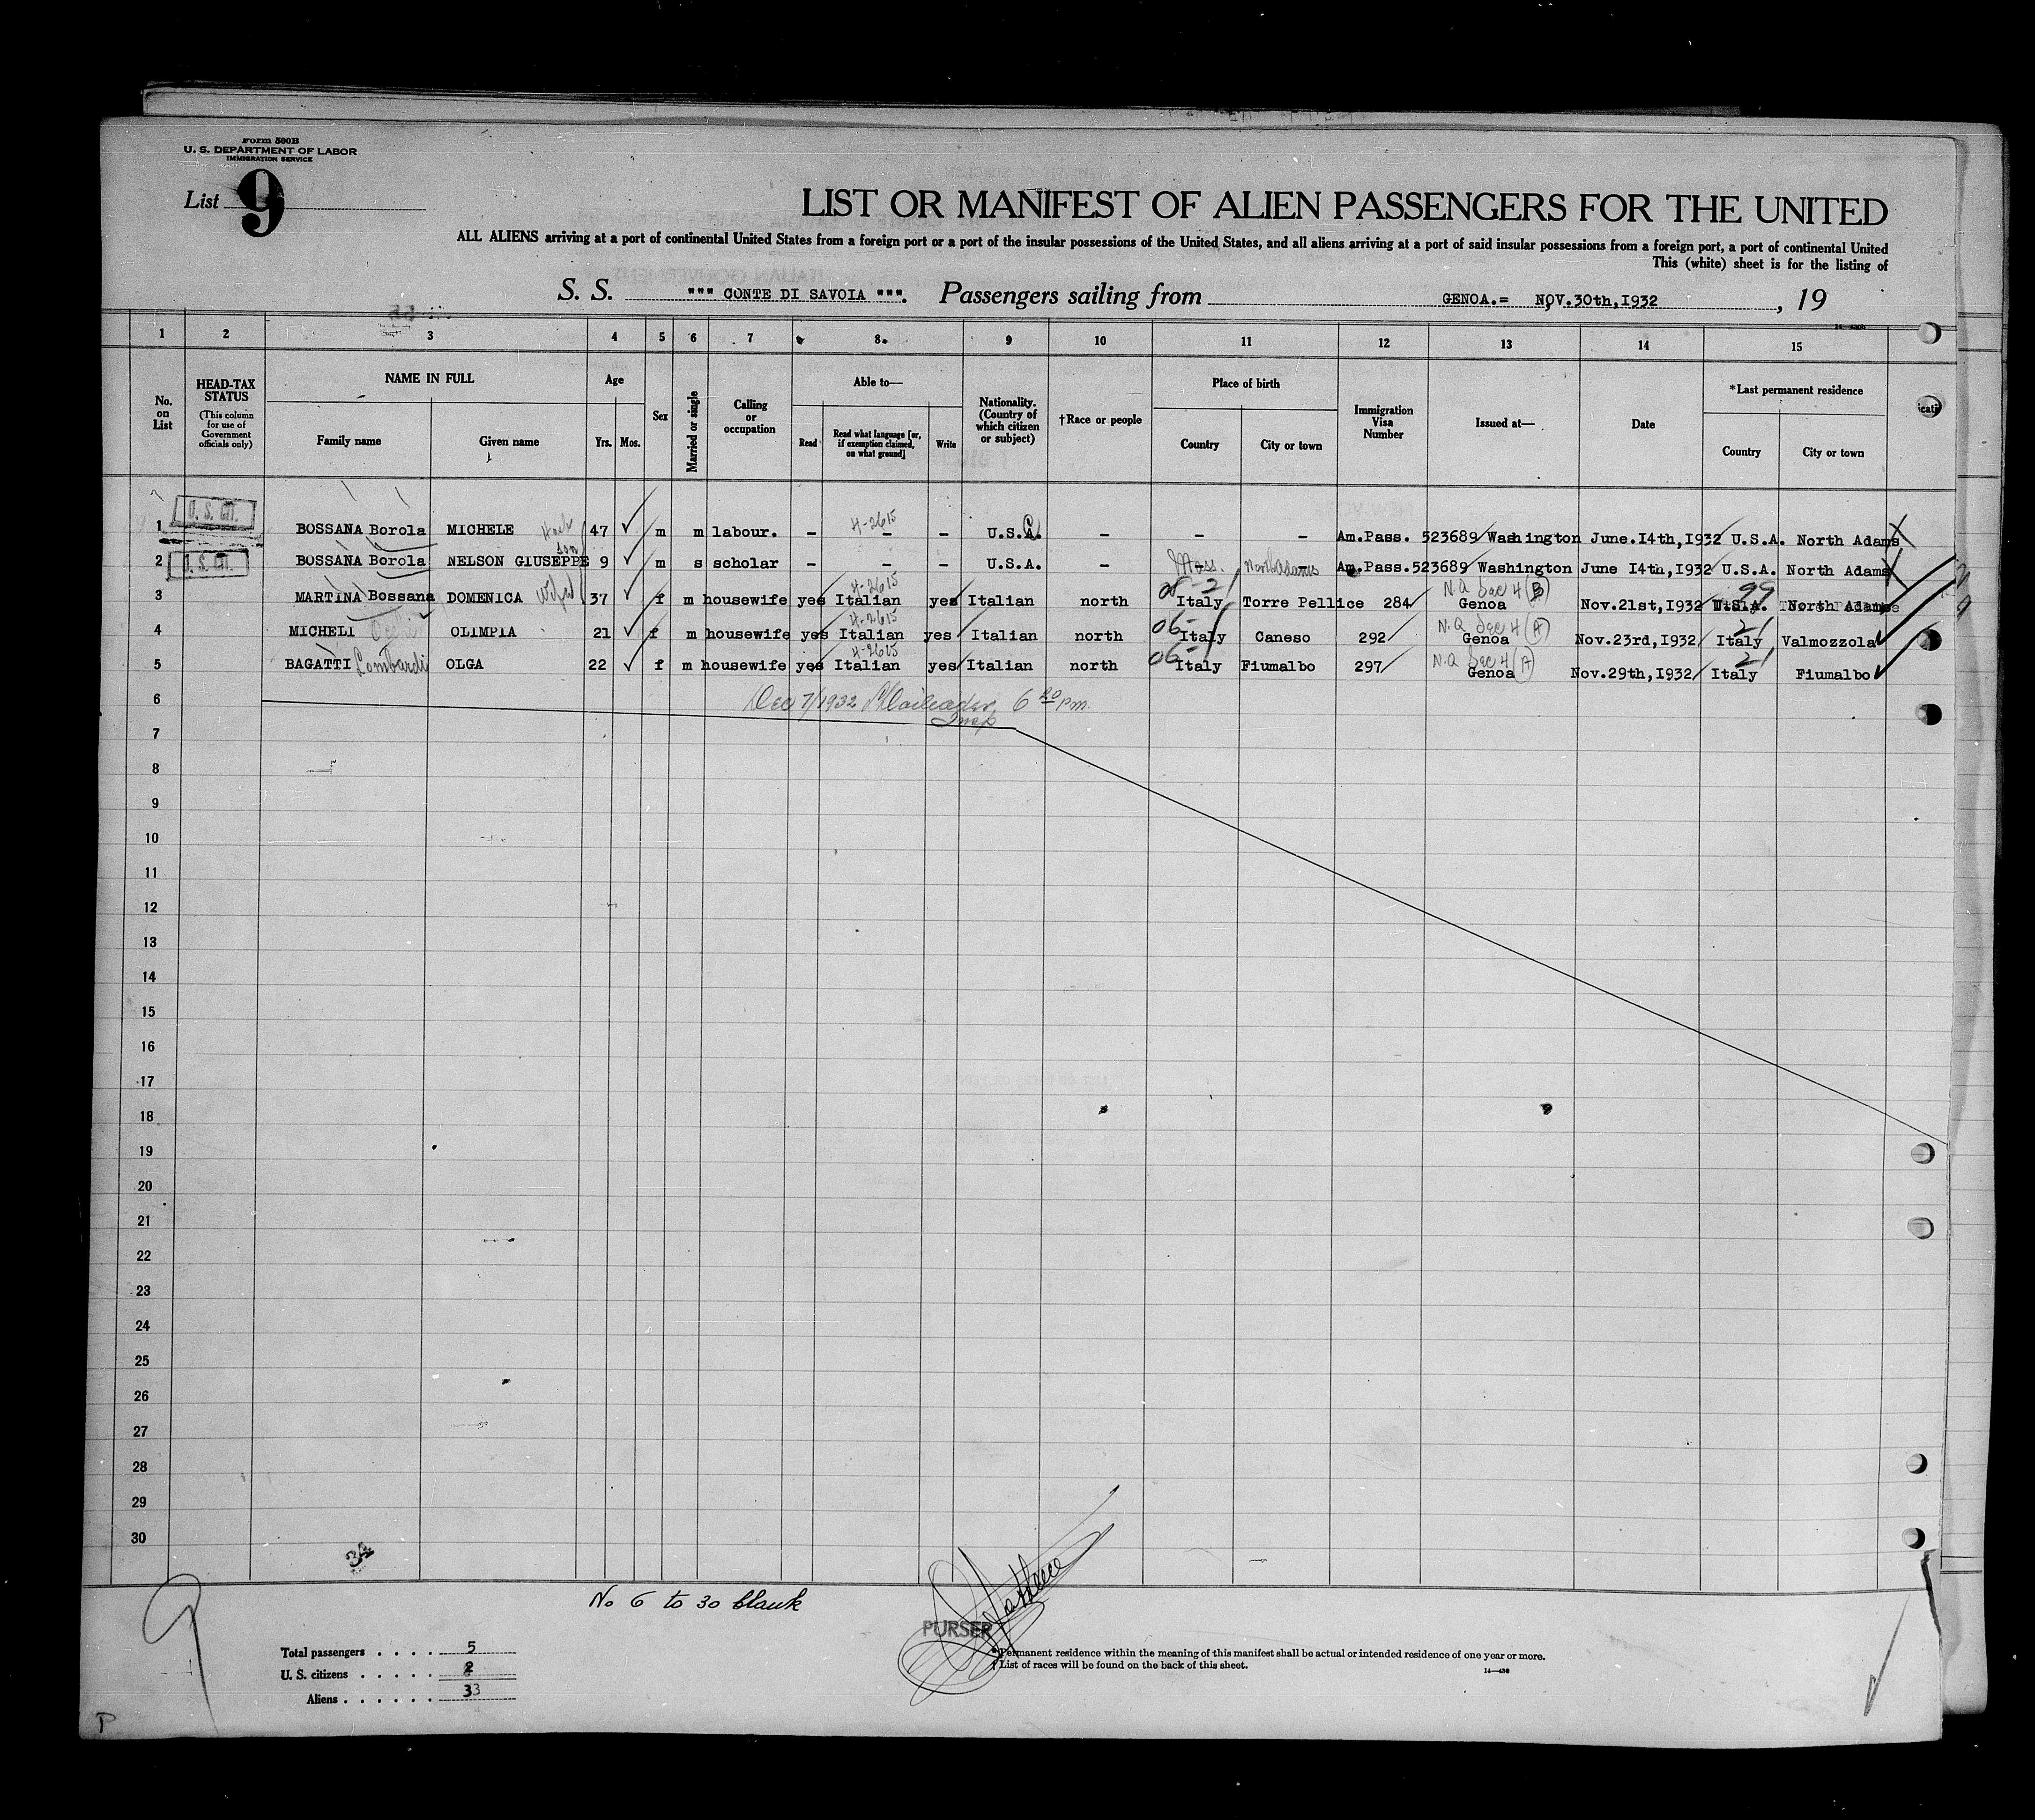 Form 500B
U. S. DEPARTMENT OF LABOR
IMMIGRATION SERVICE
List 9
LIST OR MANIFEST OF ALIEN PASSENGERS FOR THE UNITED
ALL ALIENS arriving at a port of continental United States from a foreign port or a port of the insular possessions of the United States, and all aliens arriving at a port of said insular possessions from a foreign port, a port of continental United
This (white) sheet is for the listing of
S. S. """ CONTE DI SAVOIA """. Passengers sailing from GENOA.= NOV.30th,I932 , 19
1 2 3 4 5 6 7 8 9 10 11 12 13 14 15
No. on List
HEAD-TAX STATUS (This column for use of Government officials only)
NAME IN FULL
Family name Given name
Age
Yrs. Mos.
Sex
Married or single
Calling or occupation
Able to—
Read Read what language [or, if exemption claimed, on what ground] Write
Nationality. (Country of which citizen or subject)
†Race or people
Place of birth
Country City or town
Immigration Visa Number
Issued at—
Date
*Last permanent residence
Country City or town
1 U.S.CIT. BOSSANA Borola MICHELE 47 m m labour. - 4-2615 - - U.S.A. - - - Am.Pass. 523689 Washington June.I4th,I932 U.S.A. North Adams
2 U.S.CIT. BOSSANA Borola NELSON GIUSEPPE son 9 m s scholar - - - U.S.A. - Mass. North Adams Am.Pass.523689 Washington June I4th,I932 U.S.A. North Adams
3 MARTINA Bossana DOMENICA Wife 37 f m housewife yes Italian 4-2615 yes Italian north Italy Torre Pellice 284 N.Q Dec 4 (B) Genoa Nov.21st,I932 U.S.A. 99 North Adams
4 MICHELI OLIMPIA 21 f m housewife yes Italian 4-2615 yes Italian north 06-1 Italy Caneso 292 N.Q Dec 4 (A) Genoa Nov.23rd,I932 Italy 21 Valmozzola
5 BAGATTI Lombardi OLGA 22 f m housewife yes Italian 4-2615 yes Italian north 06-1 Italy Fiumalbo 297 N.Q Dec 4 (A) Genoa Nov.29th,I932 Italy 21 Fiumalbo
6 Dec 7/1932 6 20 pm.
Insp
7
8
9
10
11
12
13
14
15
16
17
18
19
20
21
22
23
24
25
26
27
28
29
30
34
No 6 to 30 blank
PURSER
Total passengers . . . . 5
U. S. citizens . . . . . 2
Aliens . . . . . . 33
*Permanent residence within the meaning of this manifest shall be actual or intended residence of one year or more.
†List of races will be found on the back of this sheet.
9
P